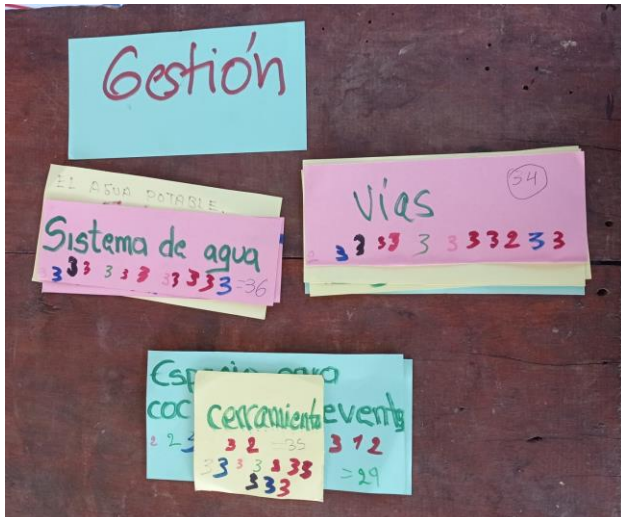 Gestión
EL AGUA POTABLE.
Sistema de agua
3 3 3 3 3 3 3 3 3 3 3 =36
Vías
34
2 3 3 3 3 3 3 3 3 2 3 3
Espacio para
coc events
2 2 3 3 1 2
=29
cerramiento
3 2 =35
3 3 3 3 3 3 3
3 3 3